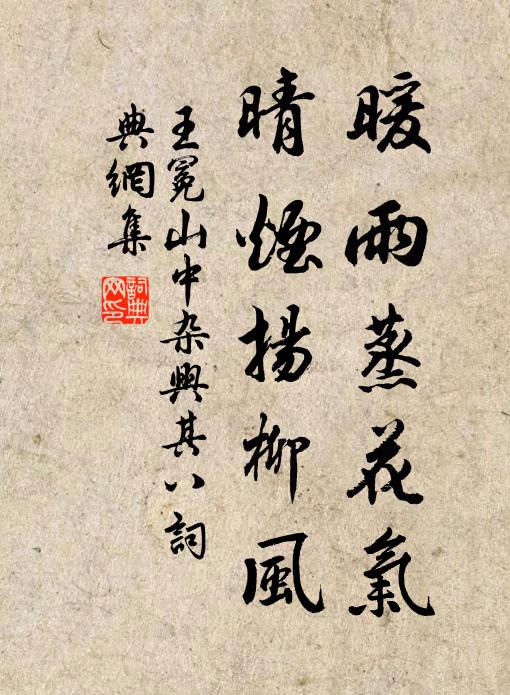 暖雨蒸花氣
晴煙揚柳風
王冕山中杂興其八詞
典網集
詞典
网印